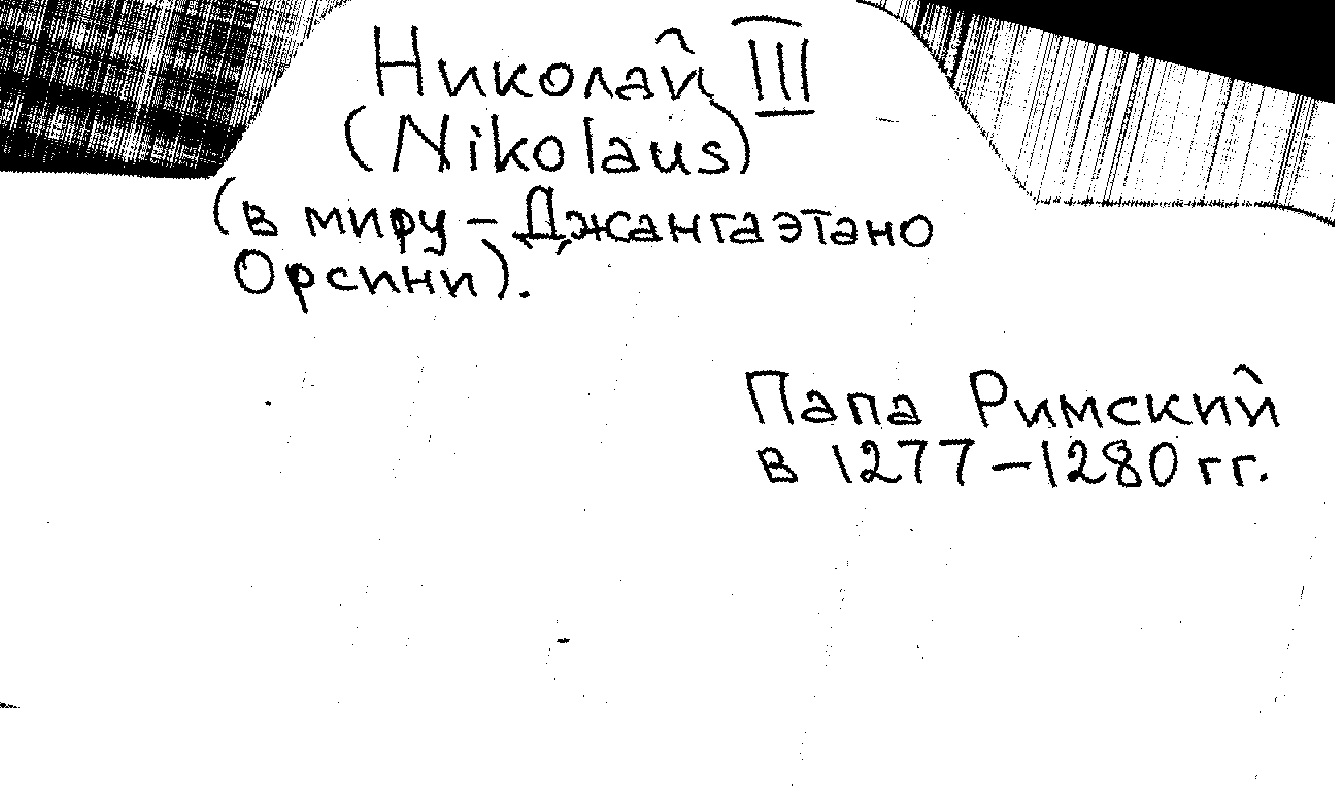 Николай III
(Nikolaus)
(в миру - Джангаэтано
Орсини).
Папа Римский
в 1277-1280 гг.